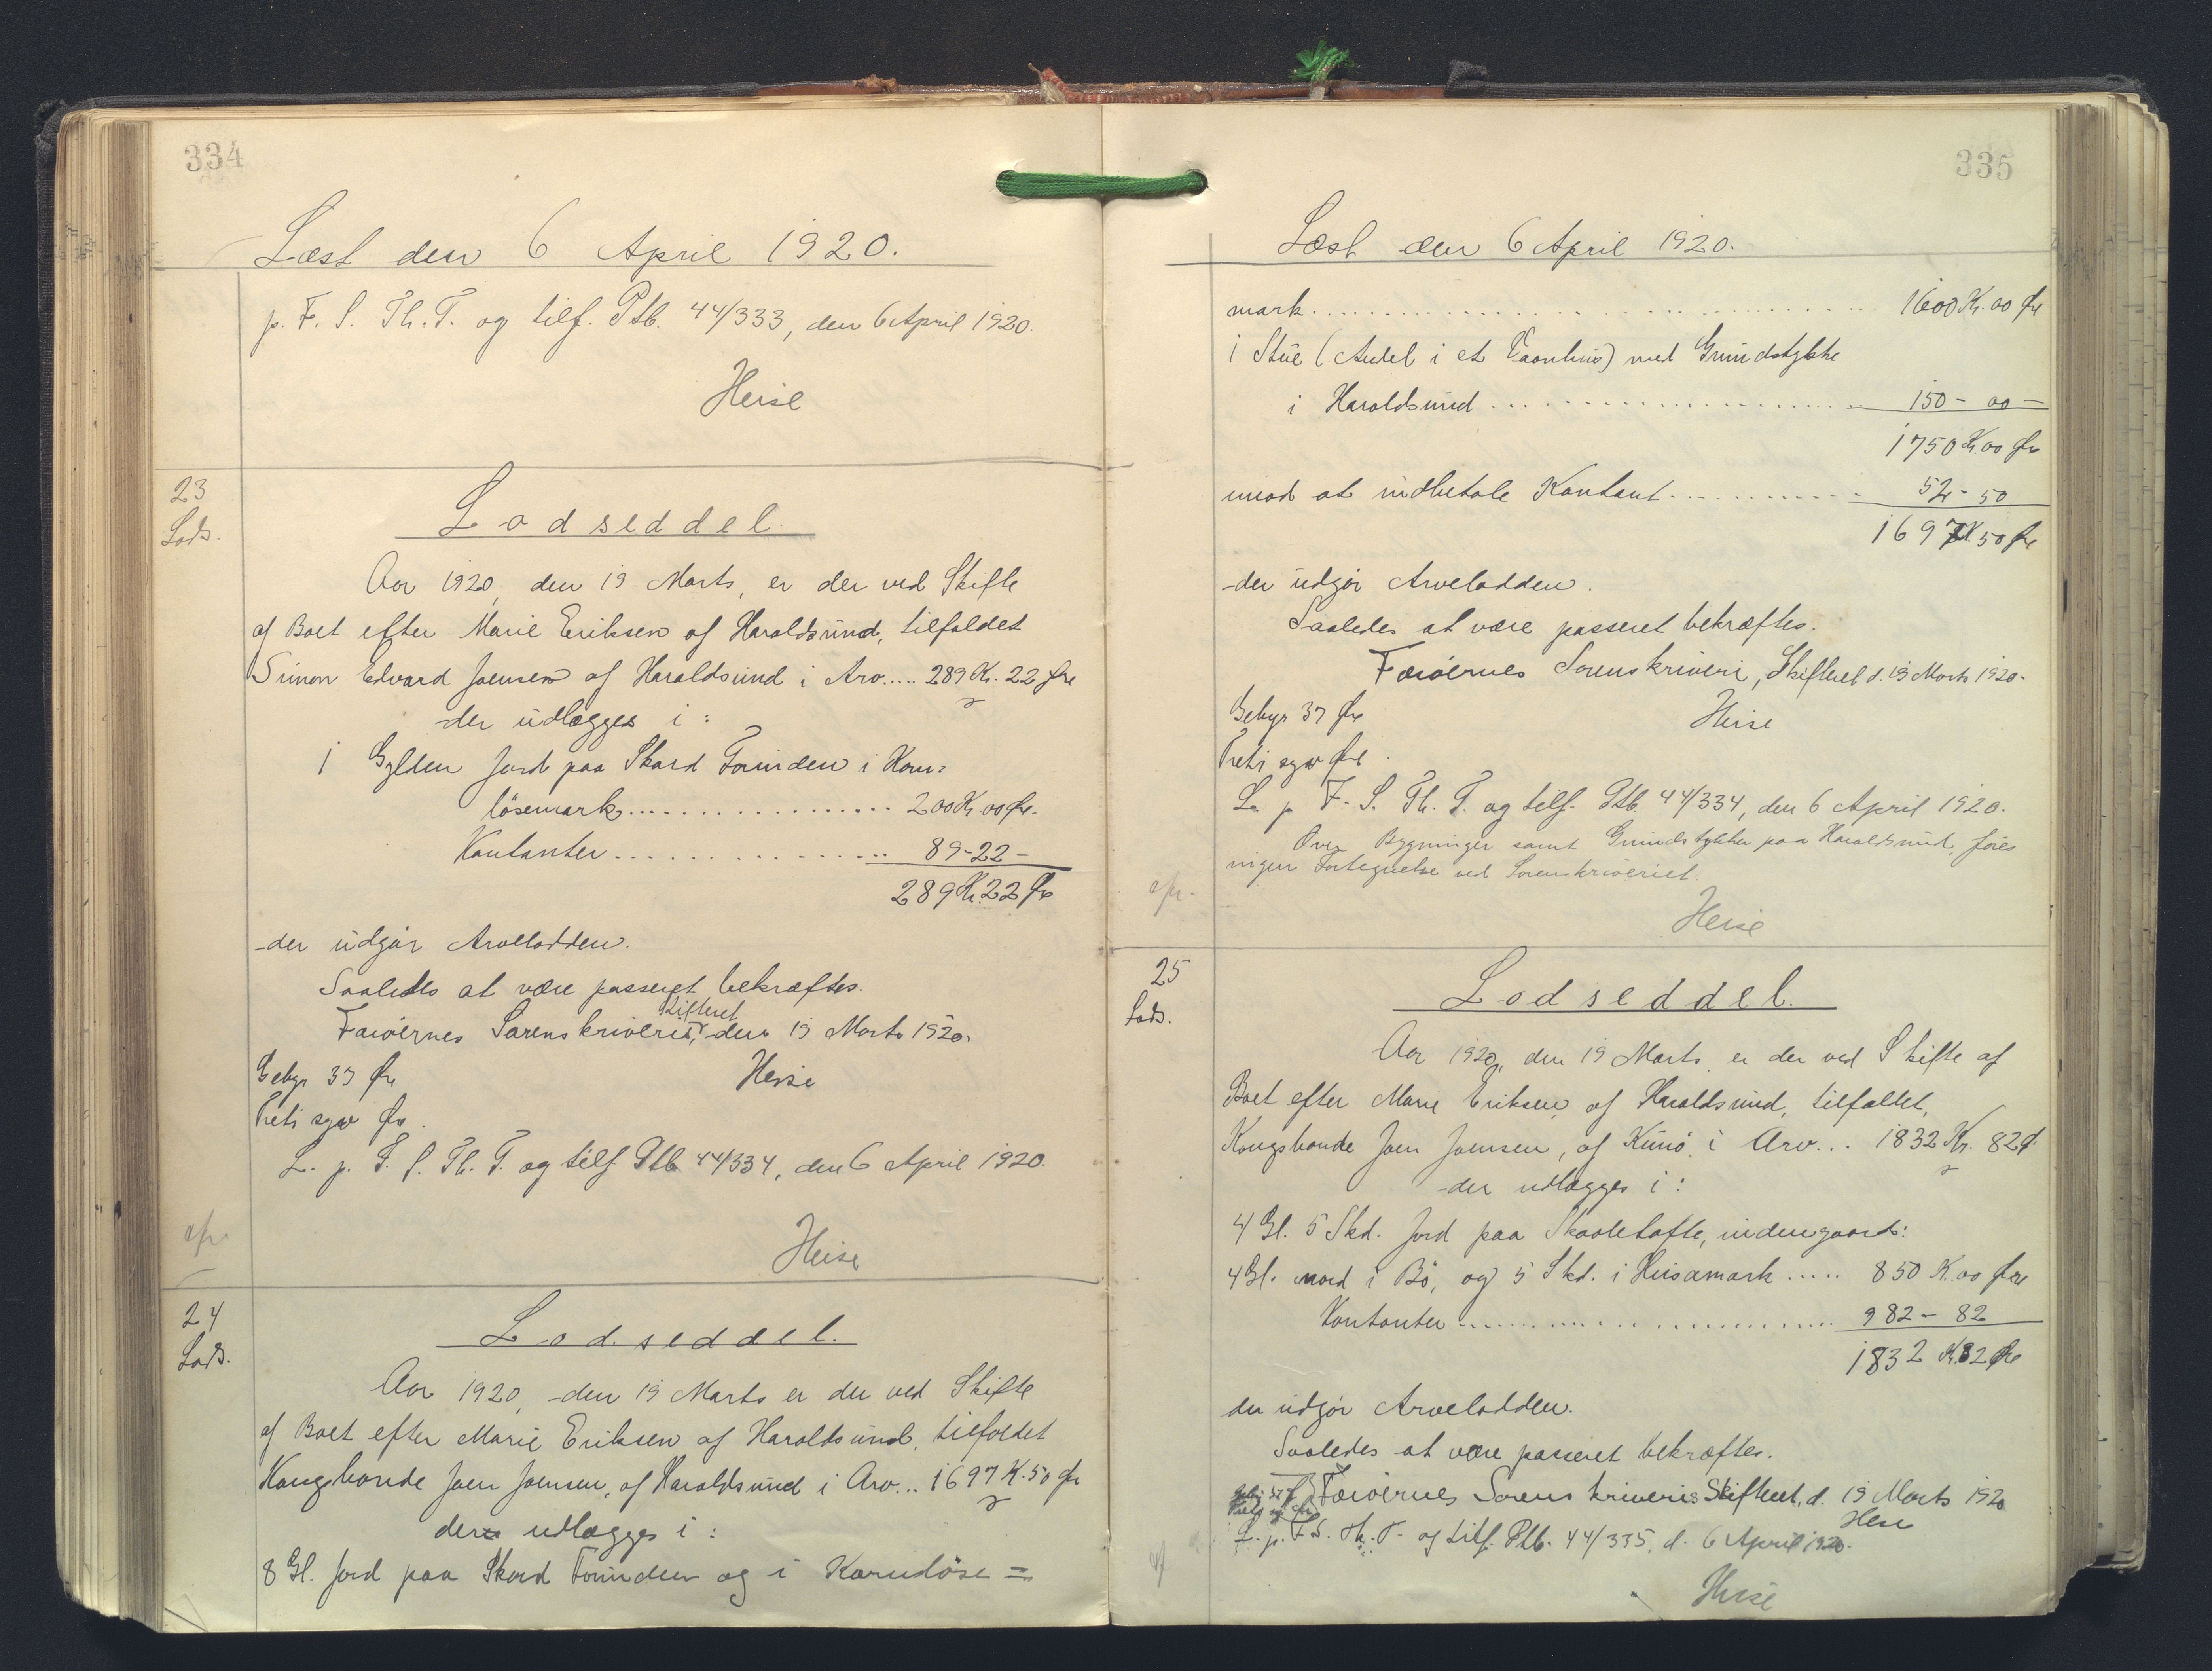 334
Læst den 6 April 1920.
p. F. S. Th. T. og tilf. Ptb. 44/333, den 6 April 1920.
Heise
23
Lods.
Lodseddel.
Aar 1920, den 19 Marts, er der ved Skifte
af Boet efter Marie Eriksen af Haraldsund, tilfaldet
Simon Edvard Joensen af Haraldsund i Arv..... 289 Kr. 22 Øre
der udlægges i :
1 Gylden Jord paa Skard Forinden i Korn=
lösemark................. 200 Kr. 00 Øre.
Kontanter................ 89-22-
289 Kr. 22 Øre
-der udgör Arvelodden.
Saaledes at være passeret bekræftes.
Færöernes Sorenskriveri, Skifteret den 19 Marts 1920.
Gebyr 37 Øre
Heise
Treti syv Øre.
L. p. F. S. Th. T. og tilf. Ptb 44/334, den 6 April 1920.
Heise
24
Lods.
Lodseddel.
Aar 1920, den 19 Marts er der ved Skifte
af Boet efter Marie Eriksen af Haraldsund, tilfaldet
Kongsbonde Joen Joensen, af Haraldsund i Arv... 1697 K. 50 Øre
der udlægges i :
8 Gl. Jord paa Skard Forinden og i Kornlöse=
335
Læst den 6 April 1920.
mark................................ 1600 Kr. 00 Øre
1 Stue (Andel i et Vaanhus) med Grundstykke
i Haraldsund...................... 150- 00-
1750 Kr. 00 Øre
imod at indbetale Kontant............ 52- 50
1697 K. 50 Øre
-der udgör Arvelodden.
Saaledes at være passeret bekræftes.
Færöernes Sorenskriveri, Skifteret d. 19 Marts 1920.
Gebyr 37 Øre
Heise
Treti syv Øre.
L. p. F. S. Th. T. og tilf. Ptb 44/334, den 6 April 1920.
Over Bygninger samt Grundstykker paa Haraldsund, föres
ingen Fortegnelse ved Sorenskriveriet.
Heise
25
Lods.
Lodseddel.
Aar 1920, den 19 Marts, er der ved Skifte af
Boet efter Marie Eriksen, af Haraldsund, tilfaldet,
Kongsbonde Joen Joensen, af Kunö, i Arv... 1832 Kr. 82 Ø
-der udlægges i :
4 Gl. 5 Skd. Jord paa Skaaletofte, indengaards:
4 Gl. nord i Bö, og 5 Skd. i Husamark..... 850 K. 00 Øre
Kontanter............................ 982- 82
1832 Kr. 82 Øre
der udgör Arvelodden.
Saaledes at være passeret bekræftes.
Færöernes Sorenskriveri, Skifteret, d. 19 Marts 1920
Heise
L. p. F. S. Th. T. og tilf. Ptb. 44/335, d. 6 April 1920.
Heise